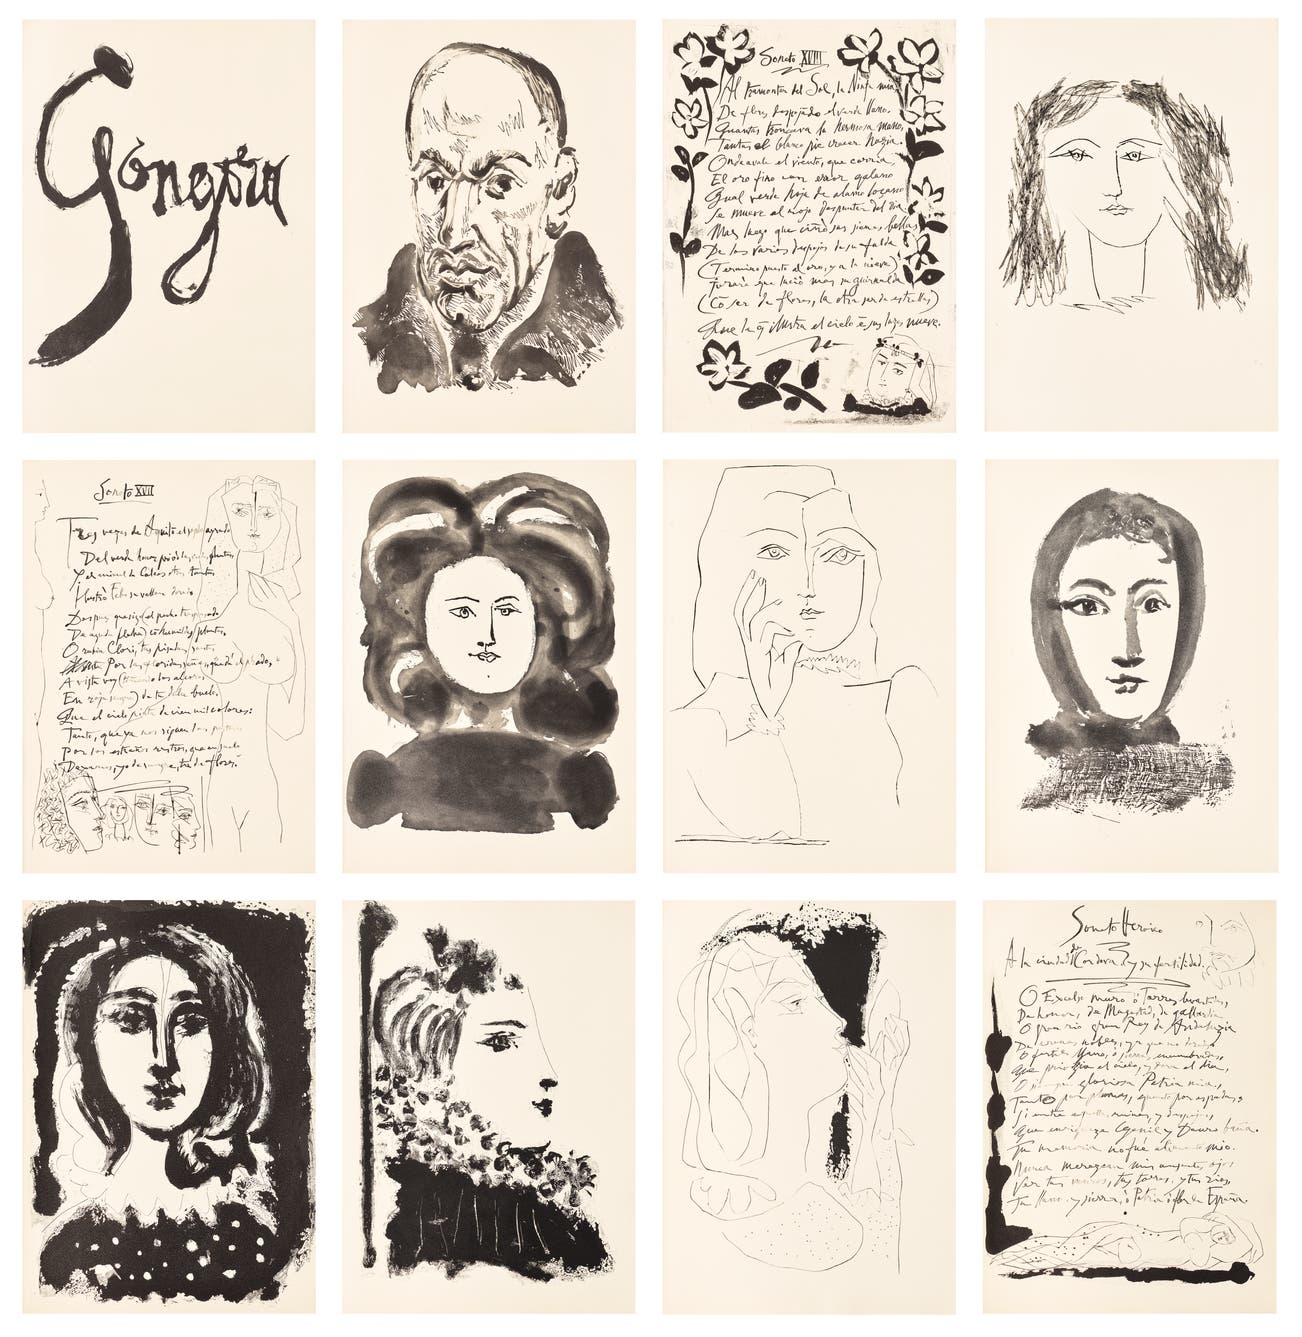 Góngora
Soneto XVIII
Al tramontar del Sol, la Ninfa mia,
De flores despojado el verde llano,
Quantas troncava la hermosa mano,
Tantas el blanco pie crecer hazia.
Ondeavale el viento, que corria,
El oro fino con error galano
Qual verde hoja de alamo loçano
Se mueve al rojo despuntar del dia.
Mas luego que ciñó sus sienes bellas
De los varios despojos de su falda
(Termino puesto al oro, y a la nieve)
juraré que lució mas su guirnalda
(Cō ser de flores, la otra ser de estrellas)
Que la q̃ illustra el cielo ē sus luzes nueve.
Soneto XVII
Tres veces de Aquilō el soplo ayrado
Del verde honor privó las verdes plantas,
Y al animal de Colcos otras tantas
Ilustró Febo su vellon dorado
Despues que sigo (el pecho traspasado
De aguda flecha) cō humildes plantas,
O bella Clori, tus pisadas santas
Por las floridas señas que dá el prado,
A vista voy (tiñendo los alcores
En roja sangre) de tu dulce buelo,
Que el cielo pinta de cien mil colores:
Tanto, que ya nos siguen los pastores
Por los estraños rastros, que en el suelo
Dexamos, yo de sangre, tu de flores.
Soneto Heroico
A la ciudad de Cordova, y su fertilidad.
O Excelso muro ò Torres levantadas,
De honor, de Magestad, de gallardia
O gran rio gran Rey de Andaluzia
De arenas nobles, ya que no doradas
O fertil llano, ò sierras encumbradas,
Que privilegia el cielo, y dora el dia,
O siempre gloriosa Patria mia,
Tanto por plumas, quanto por espadas,
Si entre aquellas ruinas, y despojos,
Que enriqueze Genil y Dauro baña,
Tu memoria no fué alimento mio.
Nunca merezcan mis ausentes ojos
Ver tus muros, tus torres, y tus rios,
Tu llano, y sierra, ò Patria ò flor de España.